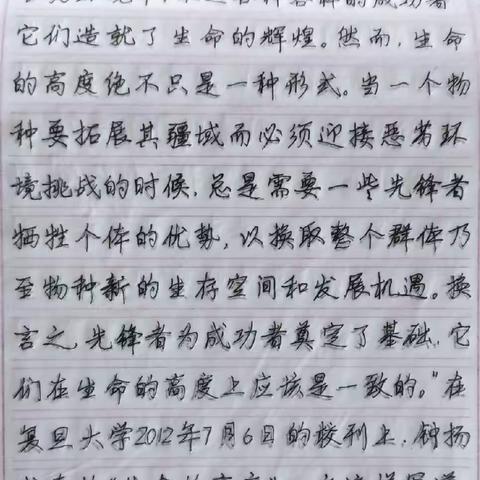 它们造就了生命的辉煌。然而，生命
的高度绝不只是一种形式。当一个物
种要拓展其疆域而必须迎接恶劣环
境挑战的时候，总是需要一些先锋者
牺牲个体的优势，以换取整个群体乃
至物种新的生存空间和发展机遇。换
言之，先锋者为成功者奠定了基础，它
们在生命的高度上应该是一致的。"在
复旦大学2012年7月6日的校刊上，钟扬